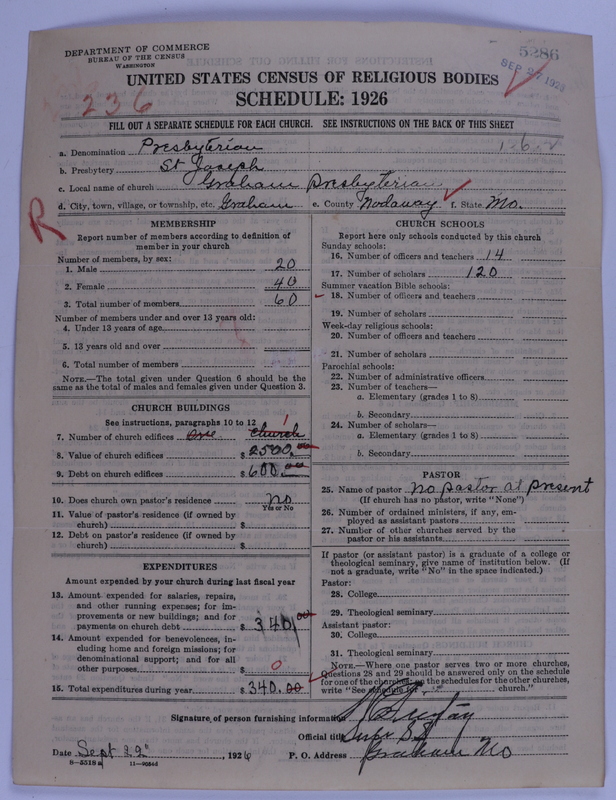 DEPARTMENT OF COMMERCE
BUREAU OF THE CENSUS
WASHINGTON
5286
SEP 27 1926
UNITED STATES CENSUS OF RELIGIOUS BODIES
SCHEDULE: 1926
236
FILL OUT A SEPARATE SCHEDULE FOR EACH CHURCH. SEE INSTRUCTIONS ON THE BACK OF THIS SHEET
a. Denomination Presbyterian
b. Presbytery St Joseph
c. Local name of church Graham Presbyterian
d. City, town, village, or township, etc. Graham e. County Nodaway f. State Mo.
R
MEMBERSHIP
Report number of members according to definition of
member in your church
Number of members, by sex:
1. Male 20
2. Female 40
3. Total number of members 60
Number of members under and over 13 years old:
4. Under 13 years of age
5. 13 years old and over
6. Total number of members
NOTE.—The total given under Question 6 should be
same as the total of males and females given under Question 3.
CHURCH BUILDINGS
See instructions, paragraphs 10 to 12
1
7. Number of church edifices one church
8. Value of church edifices $ 2500.00
9. Debt on church edifices $ 600.00
10. Does church own pastor's residence no
Yes or No
11. Value of pastor's residence (if owned by
church) $
12. Debt on pastor's residence (if owned by
church) $
EXPENDITURES
Amount expended by your church during last fiscal year
13. Amount expended for salaries, repairs,
and other running expenses; for im-
provements or new buildings; and for
payments on church debt $ 340.00
14. Amount expended for benevolences, in-
cluding home and foreign missions; for
denominational support; and for all
other purposes $ 0
15. Total expenditures during year $ 340.00
CHURCH SCHOOLS
Report here only schools conducted by this church
Sunday schools:
16. Number of officers and teachers 14
17. Number of scholars 120
Summer vacation Bible schools:
18. Number of officers and teachers
19. Number of scholars
Week-day religious schools:
20. Number of officers and teachers
21. Number of scholars
Parochial schools:
22. Number of administrative officers
23. Number of teachers—
a. Elementary (grades 1 to 8)
b. Secondary
24. Number of scholars—
a. Elementary (grades 1 to 8)
b. Secondary
PASTOR
25. Name of pastor no pastor at present
(If church has no pastor, write "None")
26. Number of ordained ministers, if any, em-
ployed as assistant pastors
27. Number of other churches served by the
pastor or his assistants
If pastor (or assistant pastor) is a graduate of a college or
theological seminary, give name of institution below. (If
not a graduate, write "No" in the space indicated.)
Pastor:
28. College
29. Theological seminary
Assistant pastor:
30. College
31. Theological seminary
NOTE.—Where one pastor serves two or more churches,
Questions 28 and 29 should be answered only on the schedule
for one of the churches; on the schedules for the other churches,
write "See schedule for church."
Signature of person furnishing information
Official title Supt S S
Date Sept 22 , 1926 P. O. Address Graham Mo
8-5518a 11-9